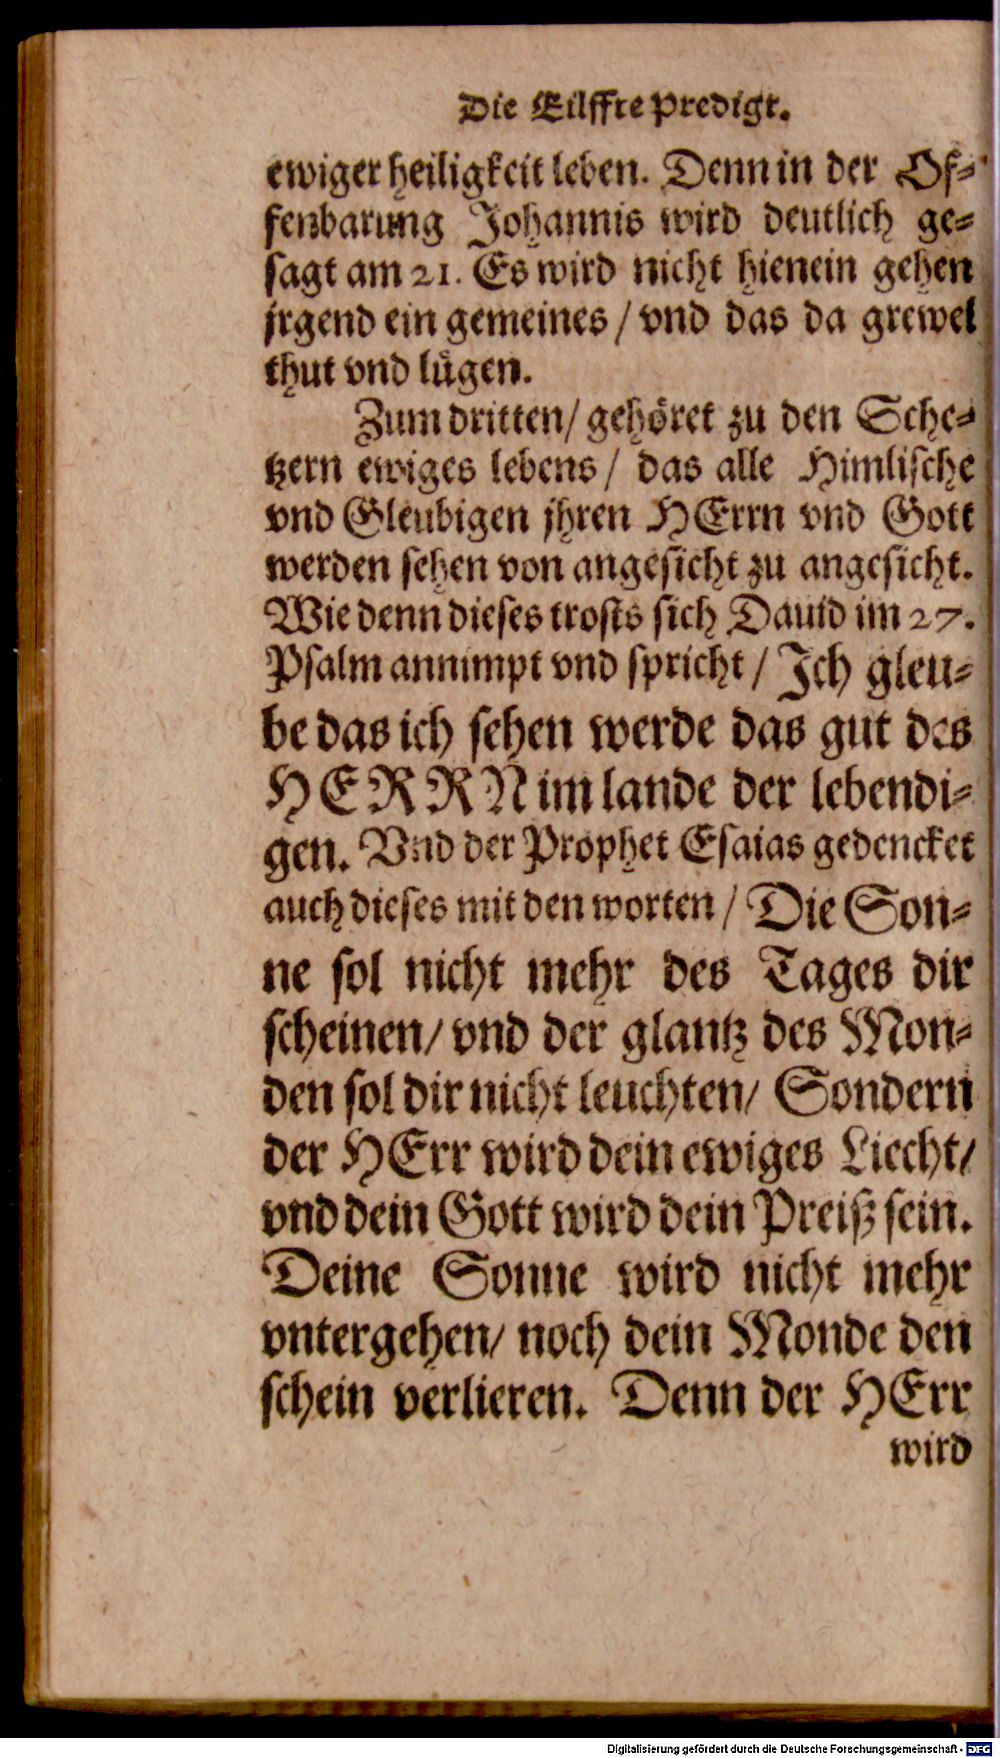 Die Eilffte Predigt.
ewiger heiligkeit leben. Denn in der Of⸗
fenbarung Johannis wird deutlich ge⸗
sagt am 21. Es wird nicht hienein gehen
jrgend ein gemeines / vnd das da grewel
thut vnd lügen.
Zum dritten / gehöret zu den Sche⸗
tzern ewiges lebens / das alle Himlische
vnd Gleubigen jhren HErrn vnd Gott
werden sehen von angesicht zu angesicht.
Wie denn dieses trosts sich Dauid im 27.
Psalm annimpt vnd spricht / Ich gleu⸗
be das ich sehen werde das gut des
HERRN im lande der lebendi⸗
gen. Vnd der Prophet Esaias gedencket
auch dieses mit den worten / Die Son⸗
ne sol nicht mehr des Tages dir
scheinen / vnd der glantz des Mon⸗
den sol dir nicht leuchten / Sondern
der HErr wird dein ewiges Liecht /
vnd dein Gott wird dein Preiß sein.
Deine Sonne wird nicht mehr
vntergehen / noch dein Monde den
schein verlieren. Denn der HErr
wird
Digitalisierung gefördert durch die Deutsche Forschungsgemeinschaft - DFG